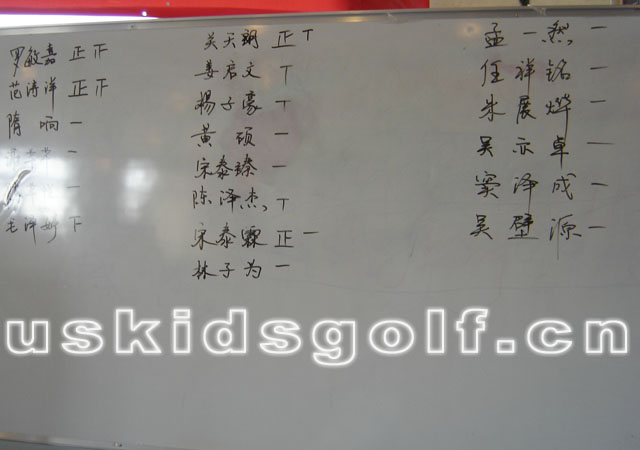 罗敏嘉 正 正
范涛洋 正 正
隋 响 一
一
一
毛泽娇 下
吴天翔 正 丅
姜启文 丅
杨子豪 丅
黄 硕 一
宋泰臻 一
陈泽杰 丅
宋泰霖 正 一
林子为 一
孟一然 一
任祥铭 一
朱展烨 一
吴亦卓 一
窦泽成 一
吴壁源 一
uskidsgolf.cn